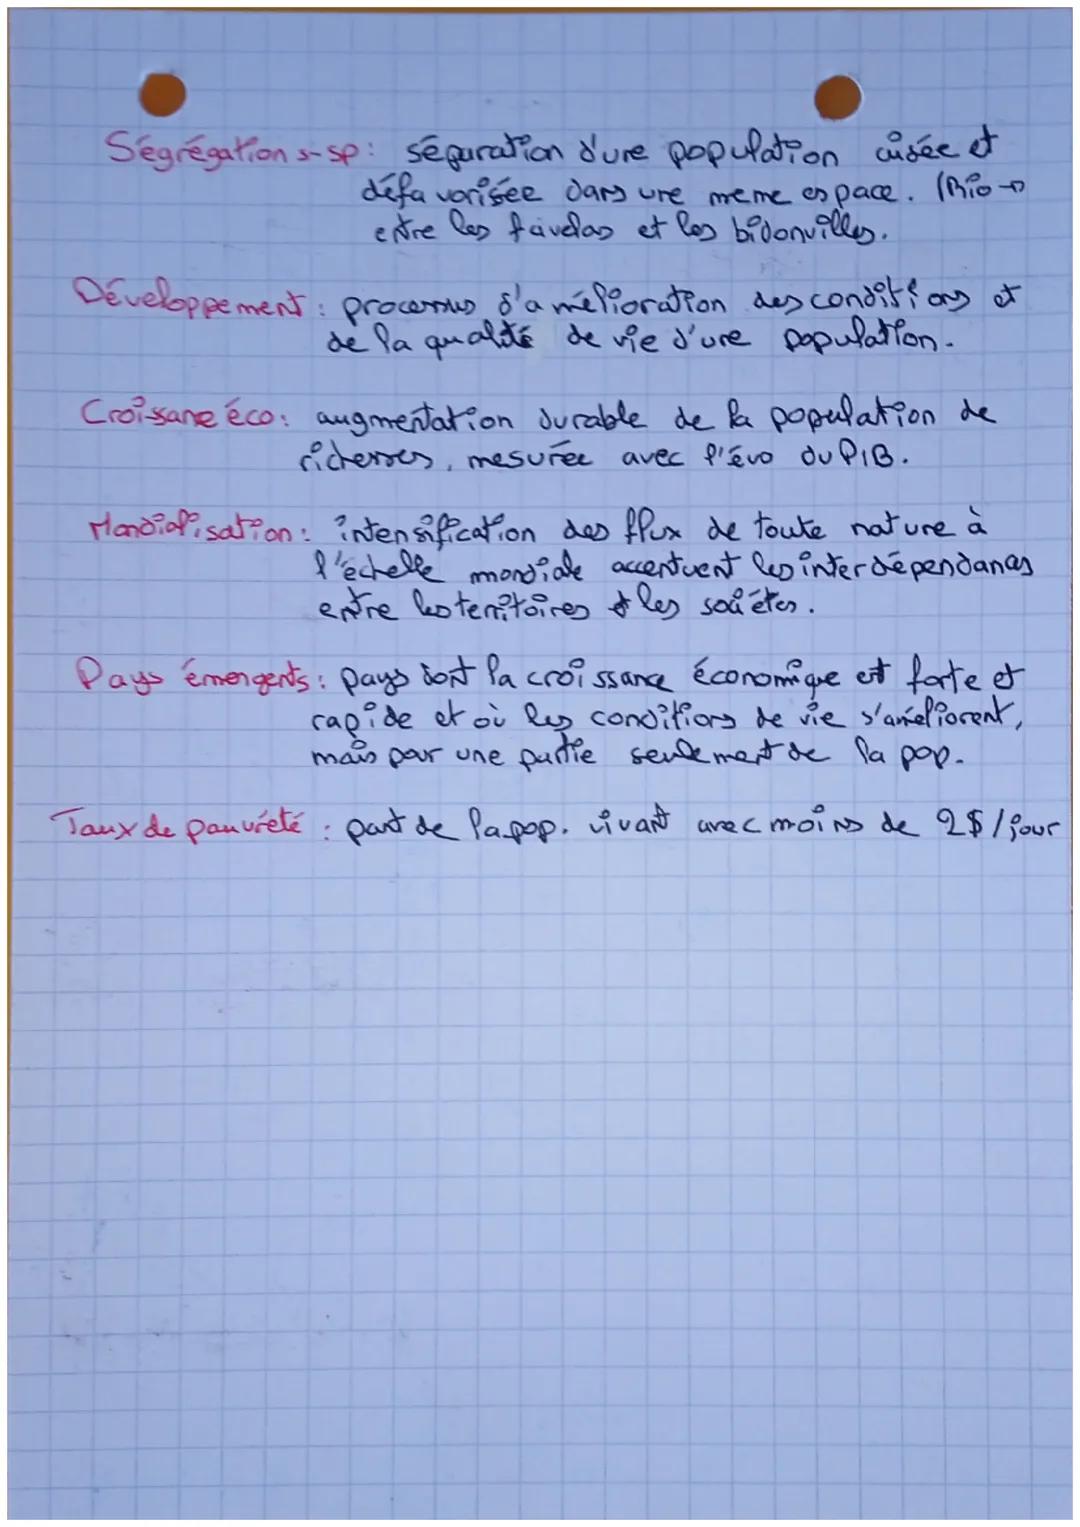 Ségrégation s-sp: séparation d'une population aisée et
défavorisée dans une meme espace. (Rio →
entre les favelas et les bidonvilles.
Développement: processus d'amélioration des conditions et
de la qualité de vie d'une population.
Croissance éco: augmentation durable de la population de
richesses, mesurée avec l'évo du PIB.
Mondialisation: intensification des flux de toute nature à
l'échelle mondiale accentuent les interdépendances
entre les territoires & les sociétés.
Pays émergents: pays dont la croissance économique est forte et
rapide et où les conditions de vie s'améliorent,
mais pour une partie seulement de la pop.
Taux de pauvreté: part de la pop. vivant avec moins de 2$/jour